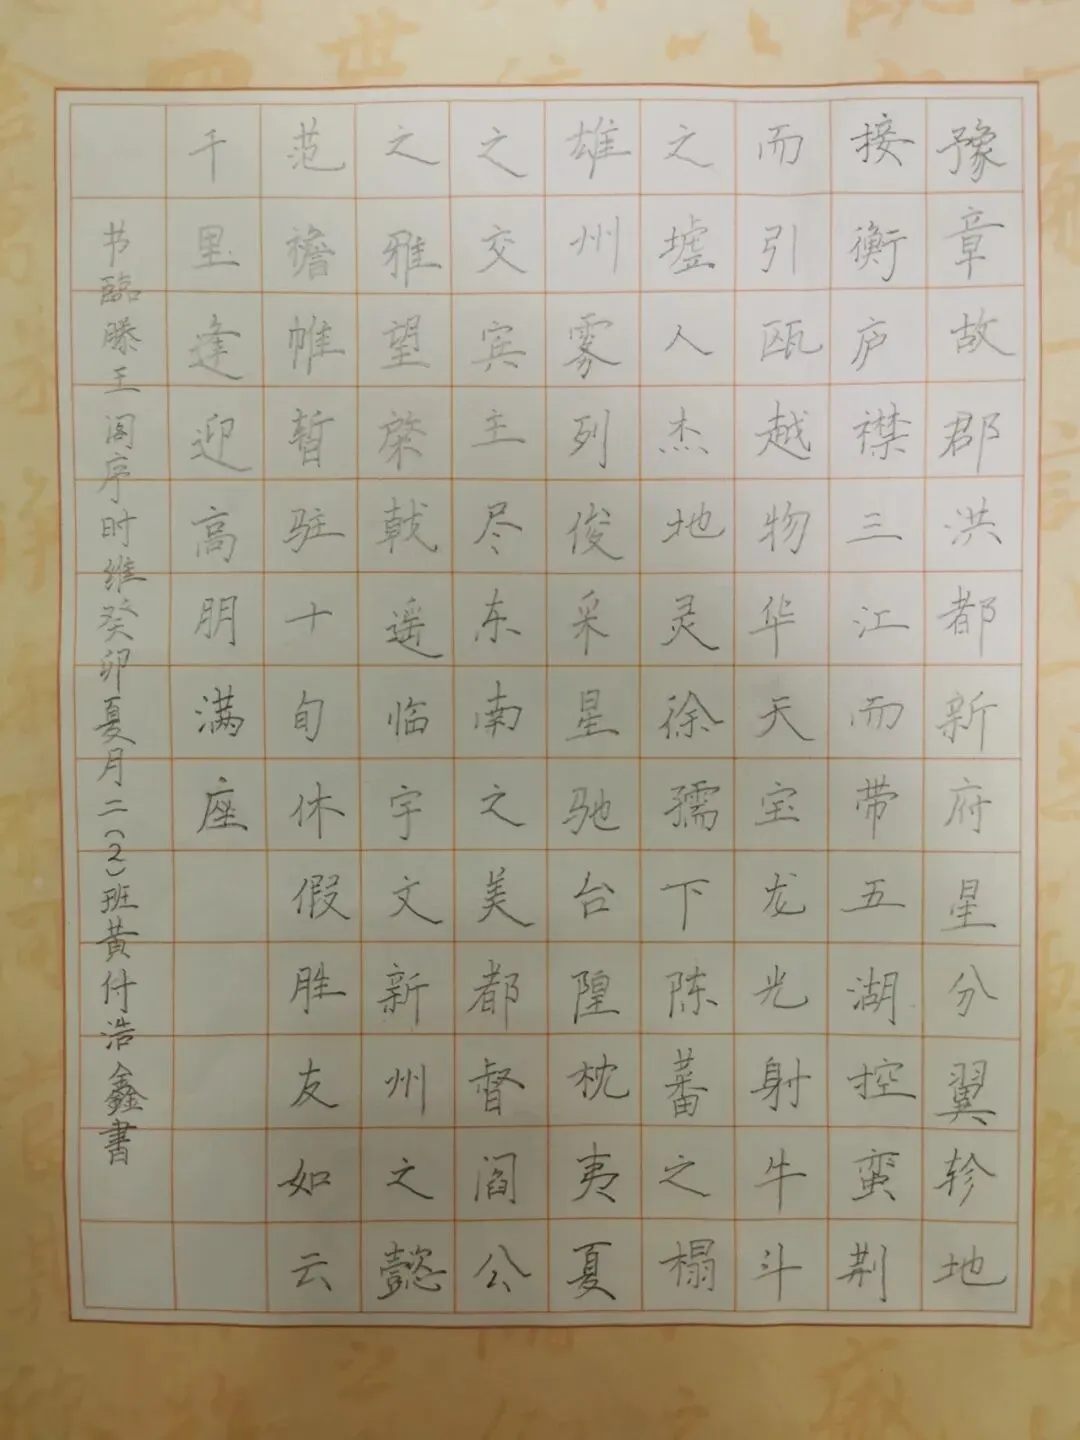 豫章故郡洪都新府星分翼轸地
接衡庐襟三江而带五湖控蛮荆
而引瓯越物华天宝龙光射牛斗
之墟人杰地灵徐孺下陈蕃之榻
雄州雾列俊采星驰台隍枕夷夏
之交宾主尽东南之美都督阎公
之雅望棨戟遥临宇文新州之懿
范襜帷暂驻十旬休假胜友如云
千里逢迎高朋满座
书臨滕王阁序时维癸卯夏月二(2)班黄付浩鑫書